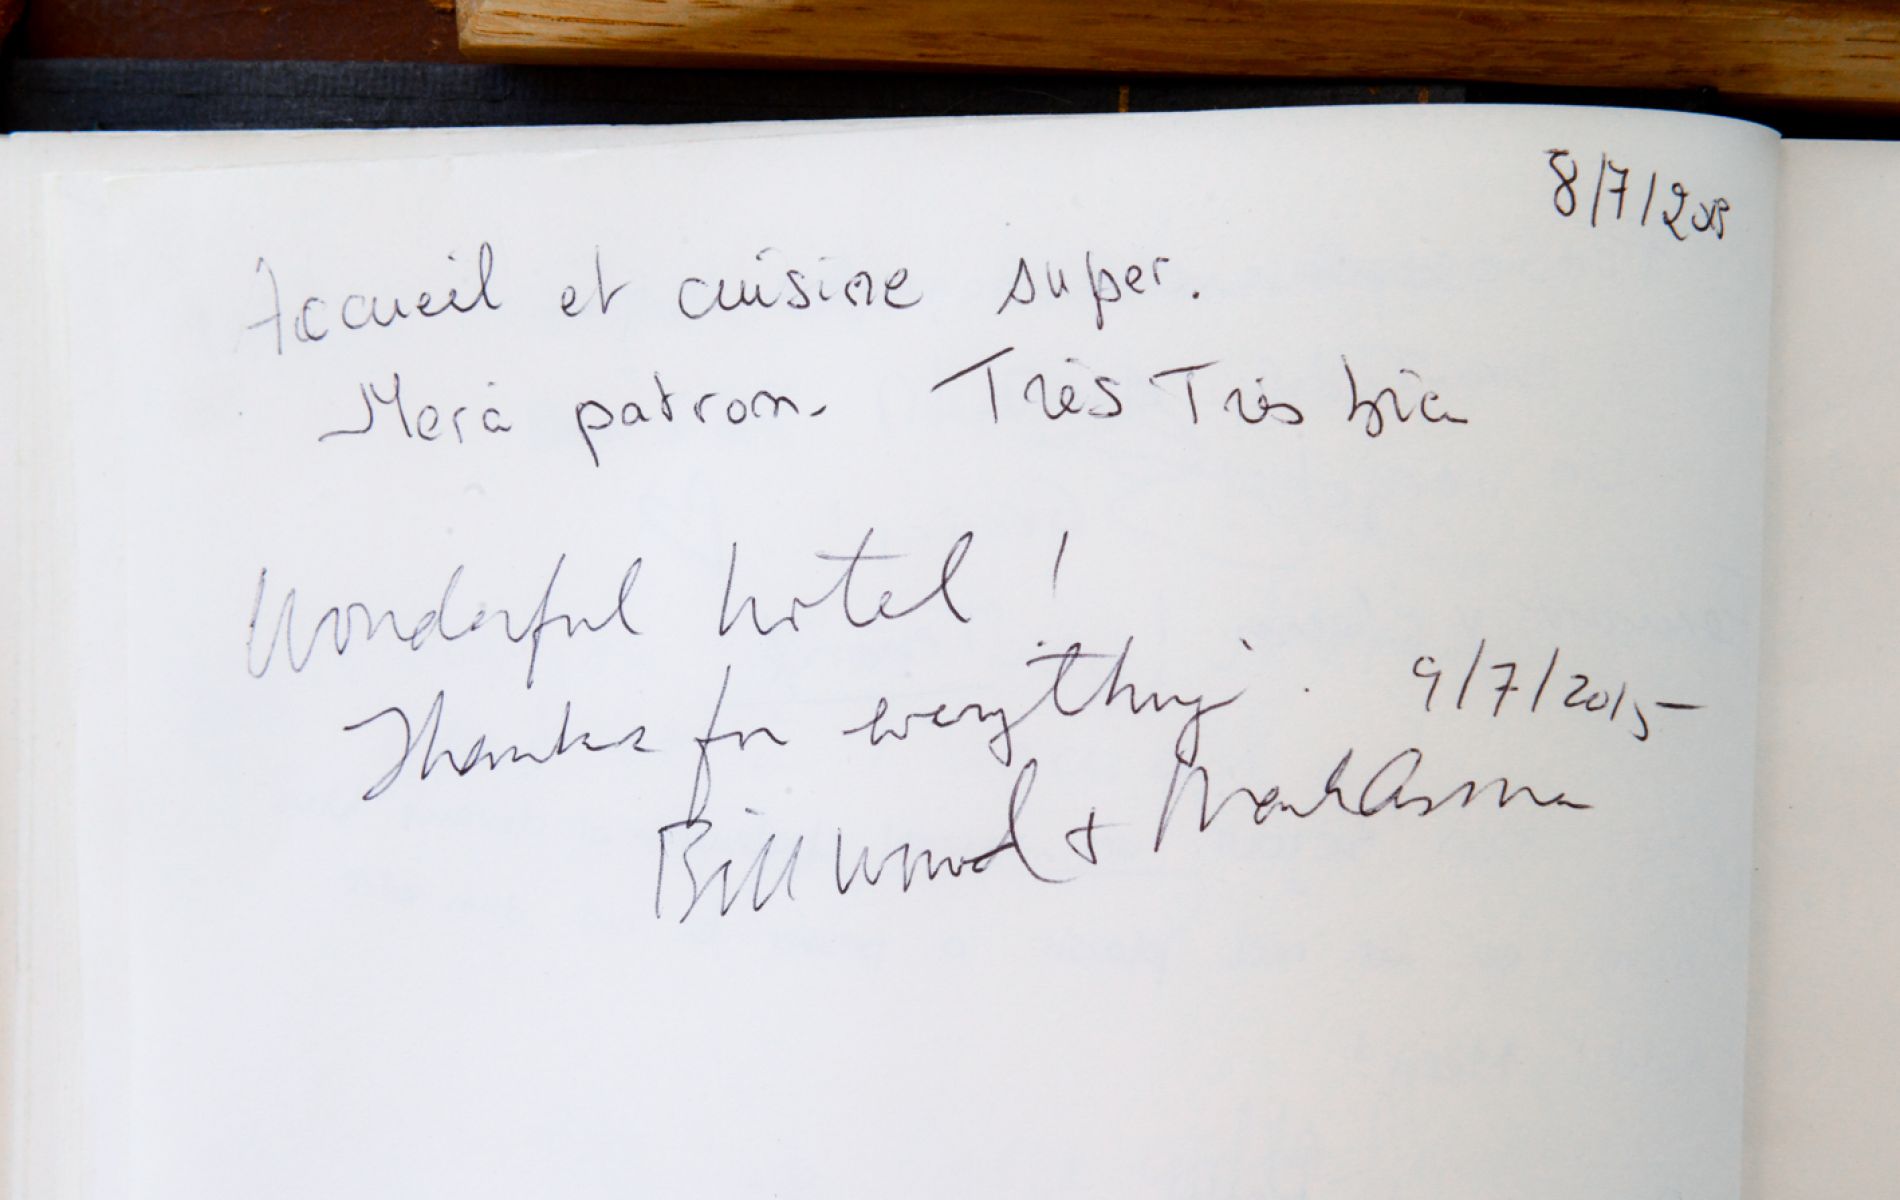 8/7/2015
Accueil et cuisine super.
Merci patron. Très Très bien
Wonderful hotel !
Thanks for everything. 9/7/2015
Bill Wood +